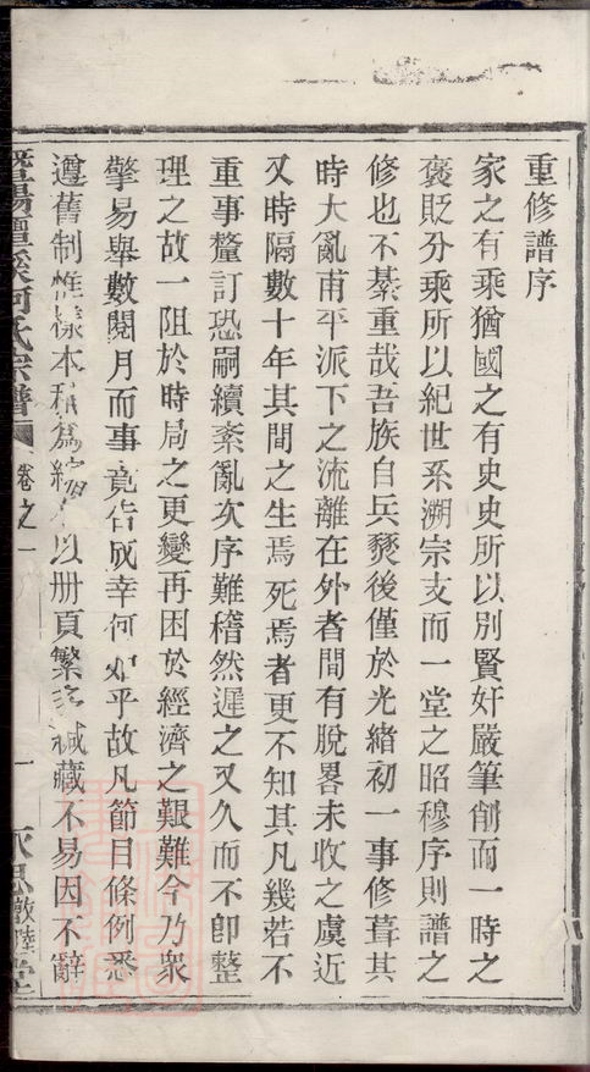 重修譜序
家之有乘猶國之有史史所以別賢奸嚴筆削而一時之
褒貶分乘所以紀世系溯宗支而一堂之昭穆序則譜之
修也不綦重哉吾族自兵燹後僅於光緒初一事修葺其
時大亂甫平派下之流離在外者間有脫畧未收之虞近
又時隔數十年其間之生焉死焉者更不知其凡幾若不
重事釐訂恐嗣續紊亂次序難稽然遲之又久而不卽整
理之故一阻於時局之更變再困於經濟之艱難今乃衆
擎易舉數閱月而事竟告成幸何如乎故凡節目條例悉
遵舊制惟樣本稍爲縮小以册頁繁多緘藏不易因不辭
暨陽 溪何氏宗譜 卷之一 一 永思敦睦堂